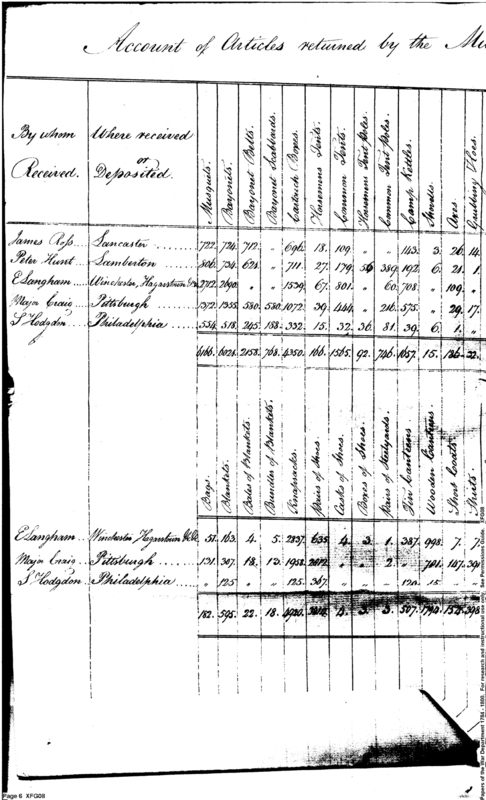 Account of Articles returned by the
By whom Received. Where received or Deposited. Musquets. Bayonets. Bayonet Belts. Bayonet Scabbards. Cartouch Boxes. Horsemens Tents. Common Tents. Horsemens Tent Poles. Common Tent Poles. Camp Kettles. Shovels. Axes. Grubbing Hoes.
James Ross Lancaster 722. 724. 712. " 696. 18. 109. " " 143. 3. 26. 14.
Peter Hunt Lamberton 806. 734. 621. " 711. 27. 179. 56 389. 192. 6. 21. 1.
E Langham Winchester, Hagarstown 2712 2690. " " 1539. 67. 801. " 60. 708. " 109. "
Major Craig Pittsburgh 1372. 1355. 580. 580. 1072. 39. 444. " 216. 575. " 29. 17.
S Hodgdon Philadelphia 554. 518. 245. 188. 332. 15. 32. 36. 81. 39. 6. 1. "
6166. 6021. 2158. 768. 4350. 166. 1565. 92. 746. 1657. 15. 186. 32.
Bags. Blankets. Bales of Blankets. Bundles of Blankets. Knapsacks. Pairs of Shoes. Casks of Shoes. Boxes of Shoes. Pairs of Steelyards. Tin Canteens. Wooden Canteens. Short Coats. Shirts.
E Langham Winchester Hagarstown 51. 163. 4. 5. 2837. 635 4. 3. 1. 387. 998. 7. 7.
Major Craig Pittsburgh 131. 307. 18. 13. 1958. " " 2. " 147. 391
S Hodgdon Philadelphia " 125. " " 125. 367. " " " 120. 15. " "
182. 595. 22. 18. 4920. 4. 3. 3. 507. 154. 398
Page 6 XFG08
Papers of the War Department 1784 - 1800. For research and instructional use only.